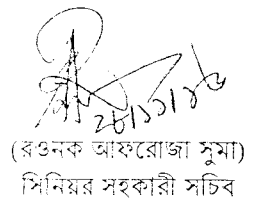 ২৮/১১/১৬
(রওনক আফরোজা সুমা)
সিনিয়র সহকারী সচিব